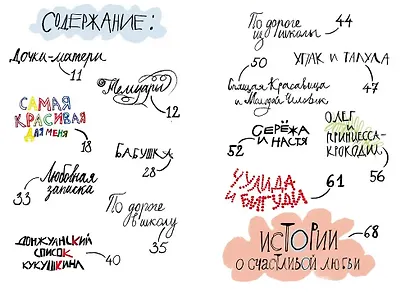 СОДЕРЖАНИЕ:
Дочки-матери
11
Мемуары
12
САМАЯ
КРАСИВАЯ
ДЛЯ МЕНЯ
18
БАБУШКА
28
Любовная
записка
33
По дороге
в школу
35
ДОНЖУАНСКИЙ
СПИСОК
КУКУШКИНА
40
По дороге
из школы
44
УПАК И ТАЛУЛА
47
50
Спящая Красавица
и Молодой Человек
СЕРЁЖА
И НАСТЯ
52
ОЛЕГ
И
ПРИНЦЕССА-
КРОКОДИЛ
56
УЛИДА
И БИГУДИ
61
ИСТОРИИ
О СЧАСТЛИВОЙ ЛЮБВИ
68